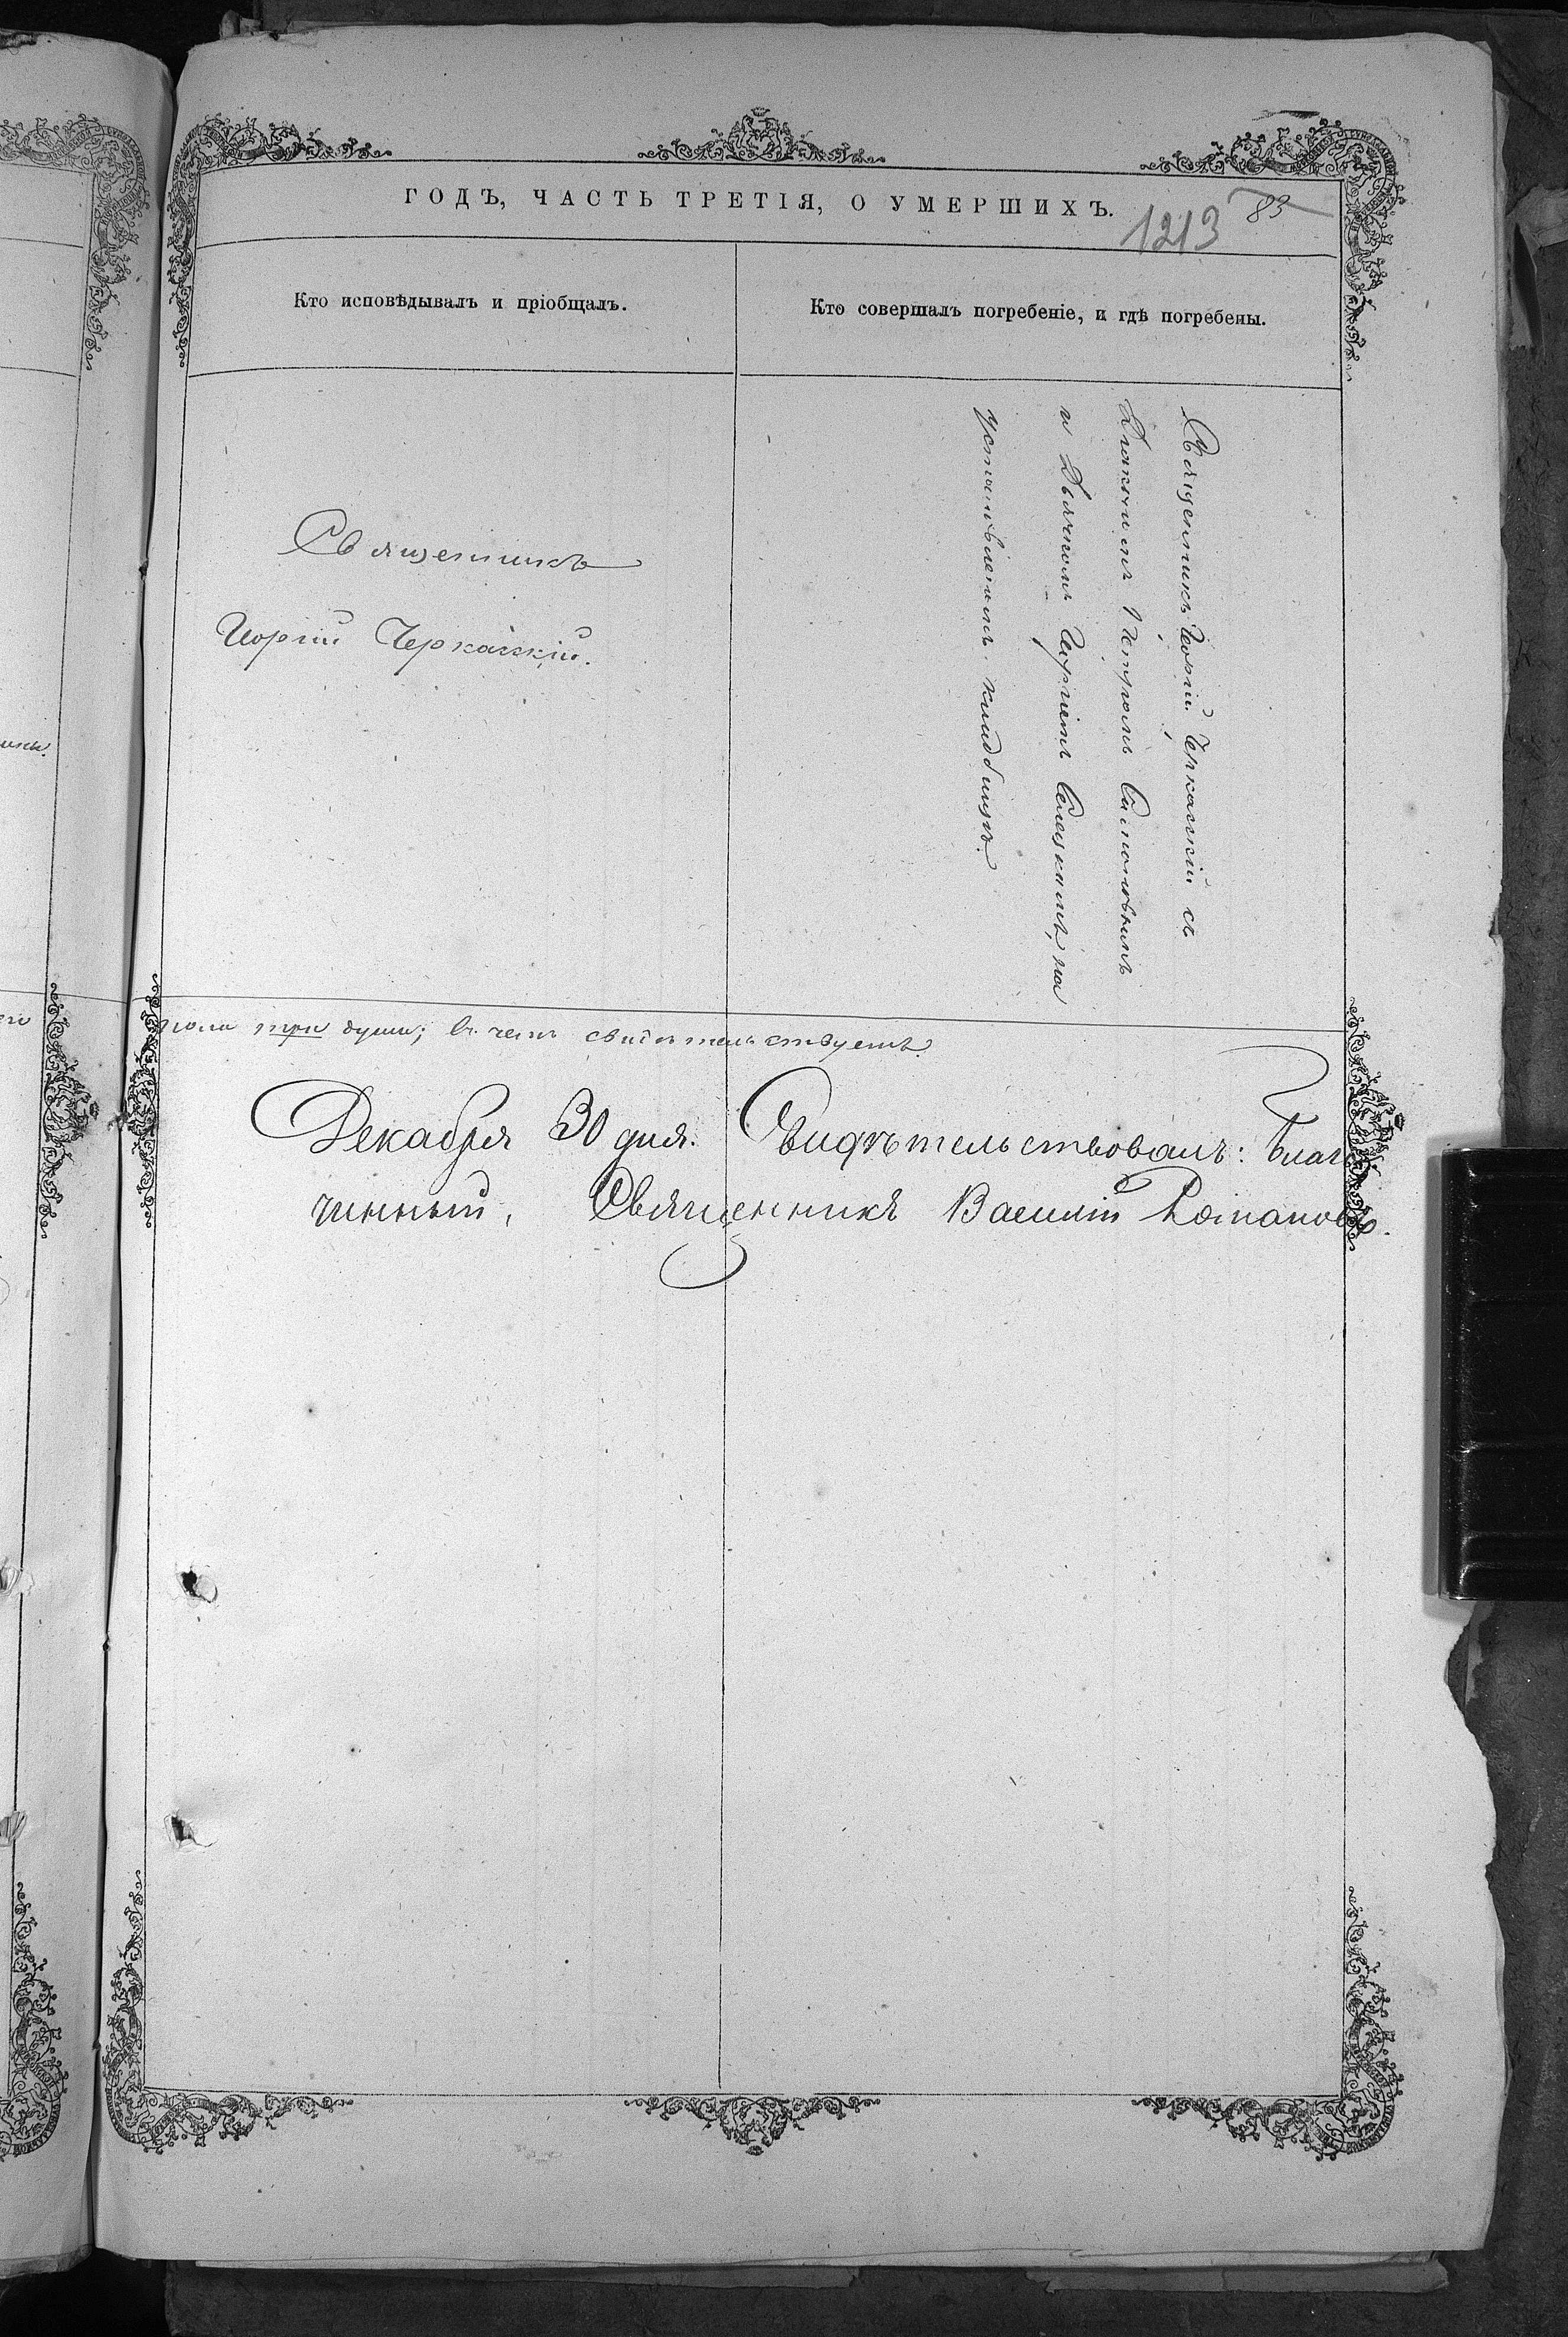 ГОДЪ, ЧАСТЬ ТРЕТІЯ, О УМЕРШИХЪ.
1213
83
Кто исповѣдывалъ и пріобщалъ.
Кто совершалъ погребеніе, и гдѣ погребены.
Священникъ
Чоргій Черкасскій.
Священникъ Чоргій Черкасскій съ
Діакономъ Петромъ Самоновымъ
и Дьячкомъ на
установленномъ кладбищѣ.
пола три души; въ чемъ свидѣтельствуемъ.
Декабря 30 дня. Свидѣтельствовалъ: Благо
чинный, Священникъ Василій Романовъ.